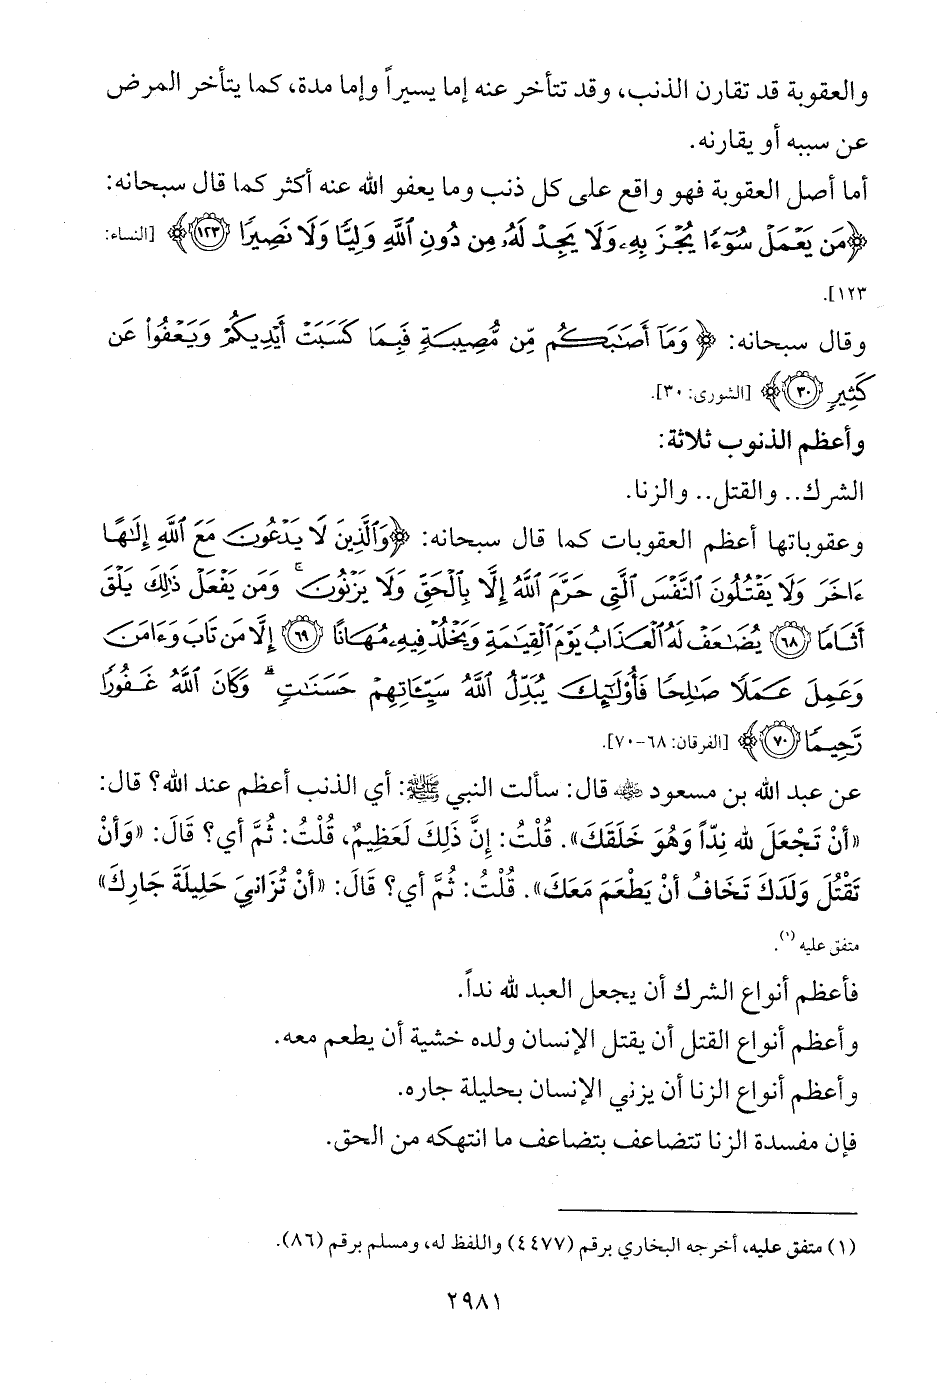 والعقوبة قد تقارن الذنب، وقد تتأخر عنه إما يسيراً وإما مدة، كما يتأخر المرض
عن سببه أو يقارنه.
أما أصل العقوبة فهو واقع على كل ذنب وما يعفو الله عنه أكثر كما قال سبحانه:
﴿مَن يَعۡمَلۡ سُوٓءٗا يُجۡزَ بِهِۦ وَلَا يَجِدۡ لَهُۥ مِن دُونِ ٱللَّهِ وَلِيّٗا وَلَا نَصِيرٗا ١٢٣﴾ [النساء:
١٢٣].
وقال سبحانه: ﴿وَمَآ أَصَٰبَكُم مِّن مُّصِيبَةٖ فَبِمَا كَسَبَتۡ أَيۡدِيكُمۡ وَيَعۡفُواْ عَن
كَثِيرٖ ٣٠﴾ [الشورى: ٣٠].
وأعظم الذنوب ثلاثة:
الشرك.. والقتل.. والزنا.
وعقوباتها أعظم العقوبات كما قال سبحانه: ﴿وَٱلَّذِينَ لَا يَدۡعُونَ مَعَ ٱللَّهِ إِلَٰهًا
ءَاخَرَ وَلَا يَقۡتُلُونَ ٱلنَّفۡسَ ٱلَّتِي حَرَّمَ ٱللَّهُ إِلَّا بِٱلۡحَقِّ وَلَا يَزۡنُونَۚ وَمَن يَفۡعَلۡ ذَٰلِكَ يَلۡقَ
أَثَامٗا ٦٨ يُضَٰعَفۡ لَهُ ٱلۡعَذَابُ يَوۡمَ ٱلۡقِيَٰمَةِ وَيَخۡلُدۡ فِيهِۦ مُهَانًا ٦٩ إِلَّا مَن تَابَ وَءَامَنَ
وَعَمِلَ عَمَلٗا صَٰلِحٗا فَأُوْلَٰٓئِكَ يُبَدِّلُ ٱللَّهُ سَيِّـَٔاتِهِمۡ حَسَنَٰتٖۗ وَكَانَ ٱللَّهُ غَفُورٗا
رَّحِيمٗا ٧٠﴾ [الفرقان: ٦٨-٧٠].
عن عبد الله بن مسعود رضي الله عنه قال: سألت النبي ﷺ: أي الذنب أعظم عند الله؟ قال:
«أنْ تَجْعَلَ لله نِدّاً وَهُوَ خَلَقَكَ». قُلْتُ: إنَّ ذَلِكَ لَعَظِيمٌ، قُلْتُ: ثُمَّ أي؟ قَالَ: «وَأنْ
تَقْتُلَ وَلَدَكَ تَخَافُ أنْ يَطْعَمَ مَعَكَ». قُلْتُ: ثُمَّ أي؟ قَالَ: «أنْ تُزَانِيَ حَلِيلَةَ جَارِكَ»
متفق عليه (١).
فأعظم أنواع الشرك أن يجعل العبد لله نداً.
وأعظم أنواع القتل أن يقتل الإنسان ولده خشية أن يطعم معه.
وأعظم أنواع الزنا أن يزني الإنسان بحليلة جاره.
فإن مفسدة الزنا تتضاعف بتضاعف ما انتهكه من الحق.
(١) متفق عليه، أخرجه البخاري برقم (٤٤٧٧) واللفظ له، ومسلم برقم (٨٦).
٢٩٨١